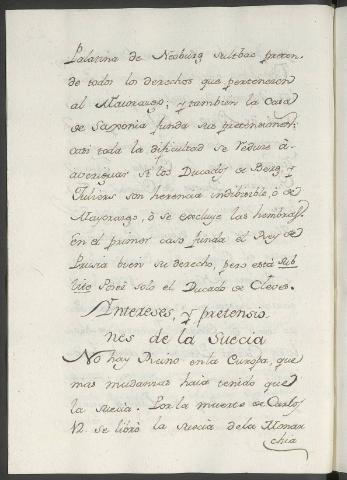 Palatina de Neoburg sultbac preten-
de todos los derechos que pertenecen
al Mayorazgo; y tambien la Casa
de Saxonia funda sus pretensiones;
casi toda la dificultad se reduce à
averiguar si los Ducados de Berg, y
Juliers son herencia indibisible, ò de
Mayorazgo, ò se excluye las hembras.
En el primer caso funda el Rey de
Prusia bien su derecho, pero està sub
lite Perès solo el Ducado de Cleves.
Intereses, y pretensio
nes de la Suecia
No hay Reino en la Europa, que
mas mudanzas haia tenido que
la Suecia. Por la muerte de Carlos
12. se librò la Suecia de la Monar
chia